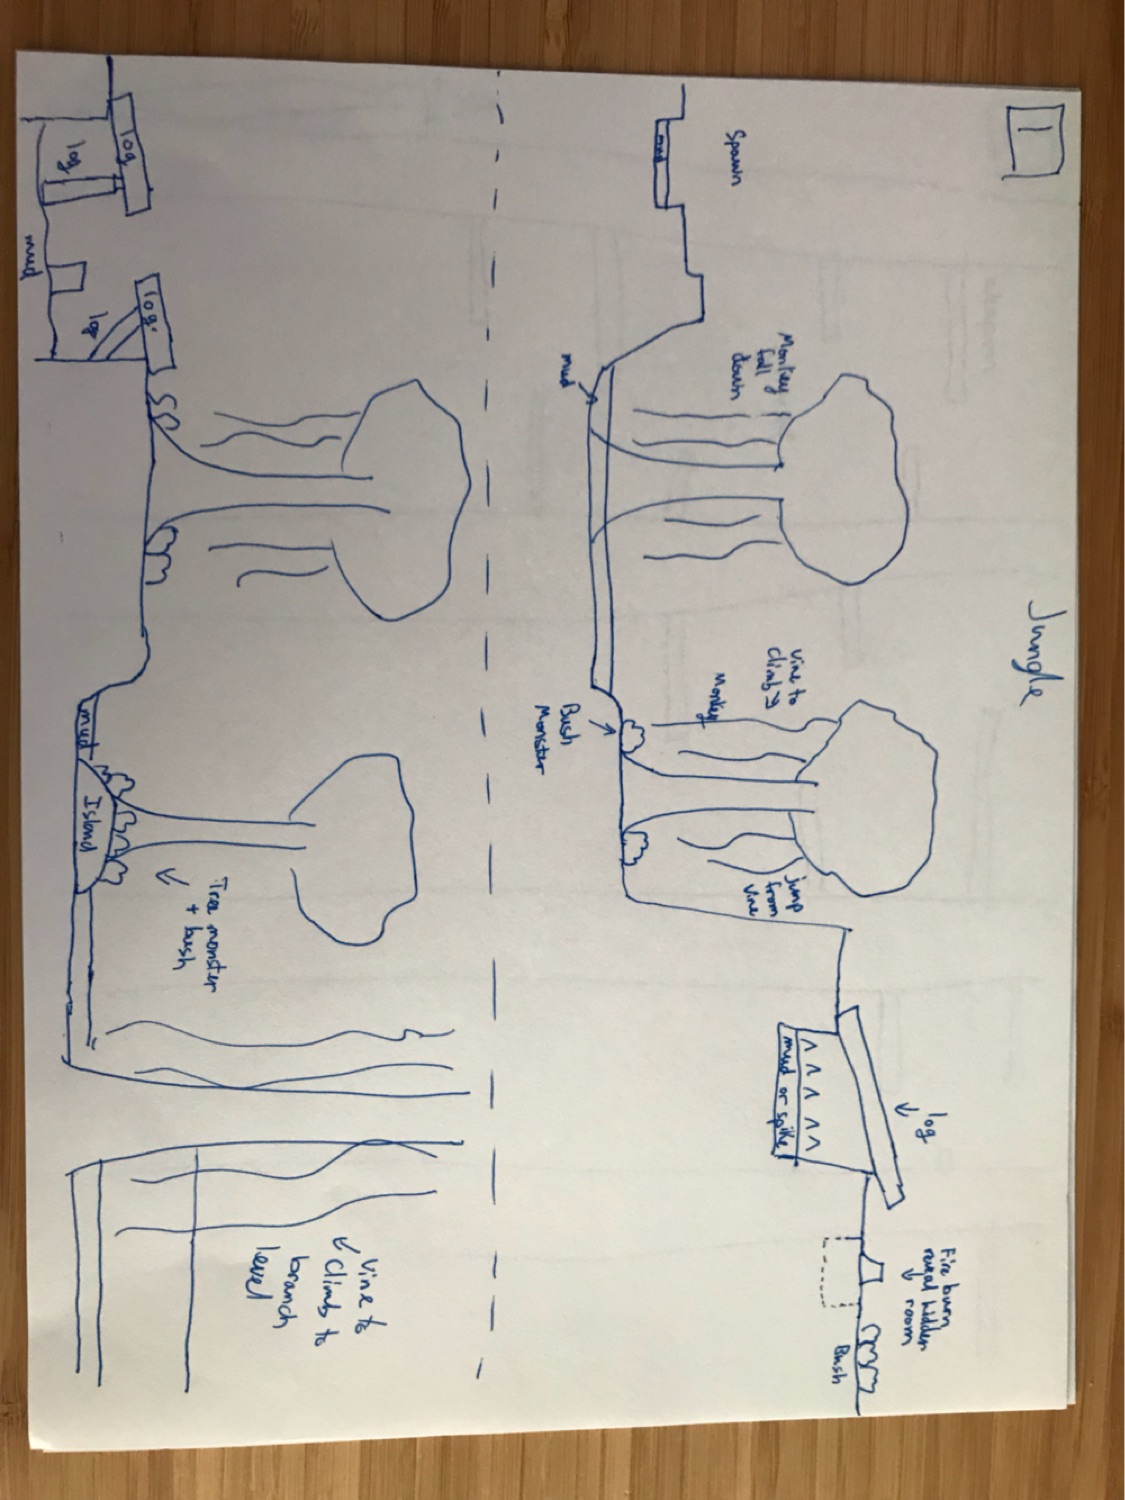 1
Jungle
Spawn
mud
Monkey
fall
down
mud
vine to
climb
Monkey
Bush
Monster
jump
from
vine
log
mud or spike
Fire burn
reveal hidden
room
Bush
log
log
mud
log
log
mud
Island
Tree monster
+ bush
Vine to
climb to
branch
level